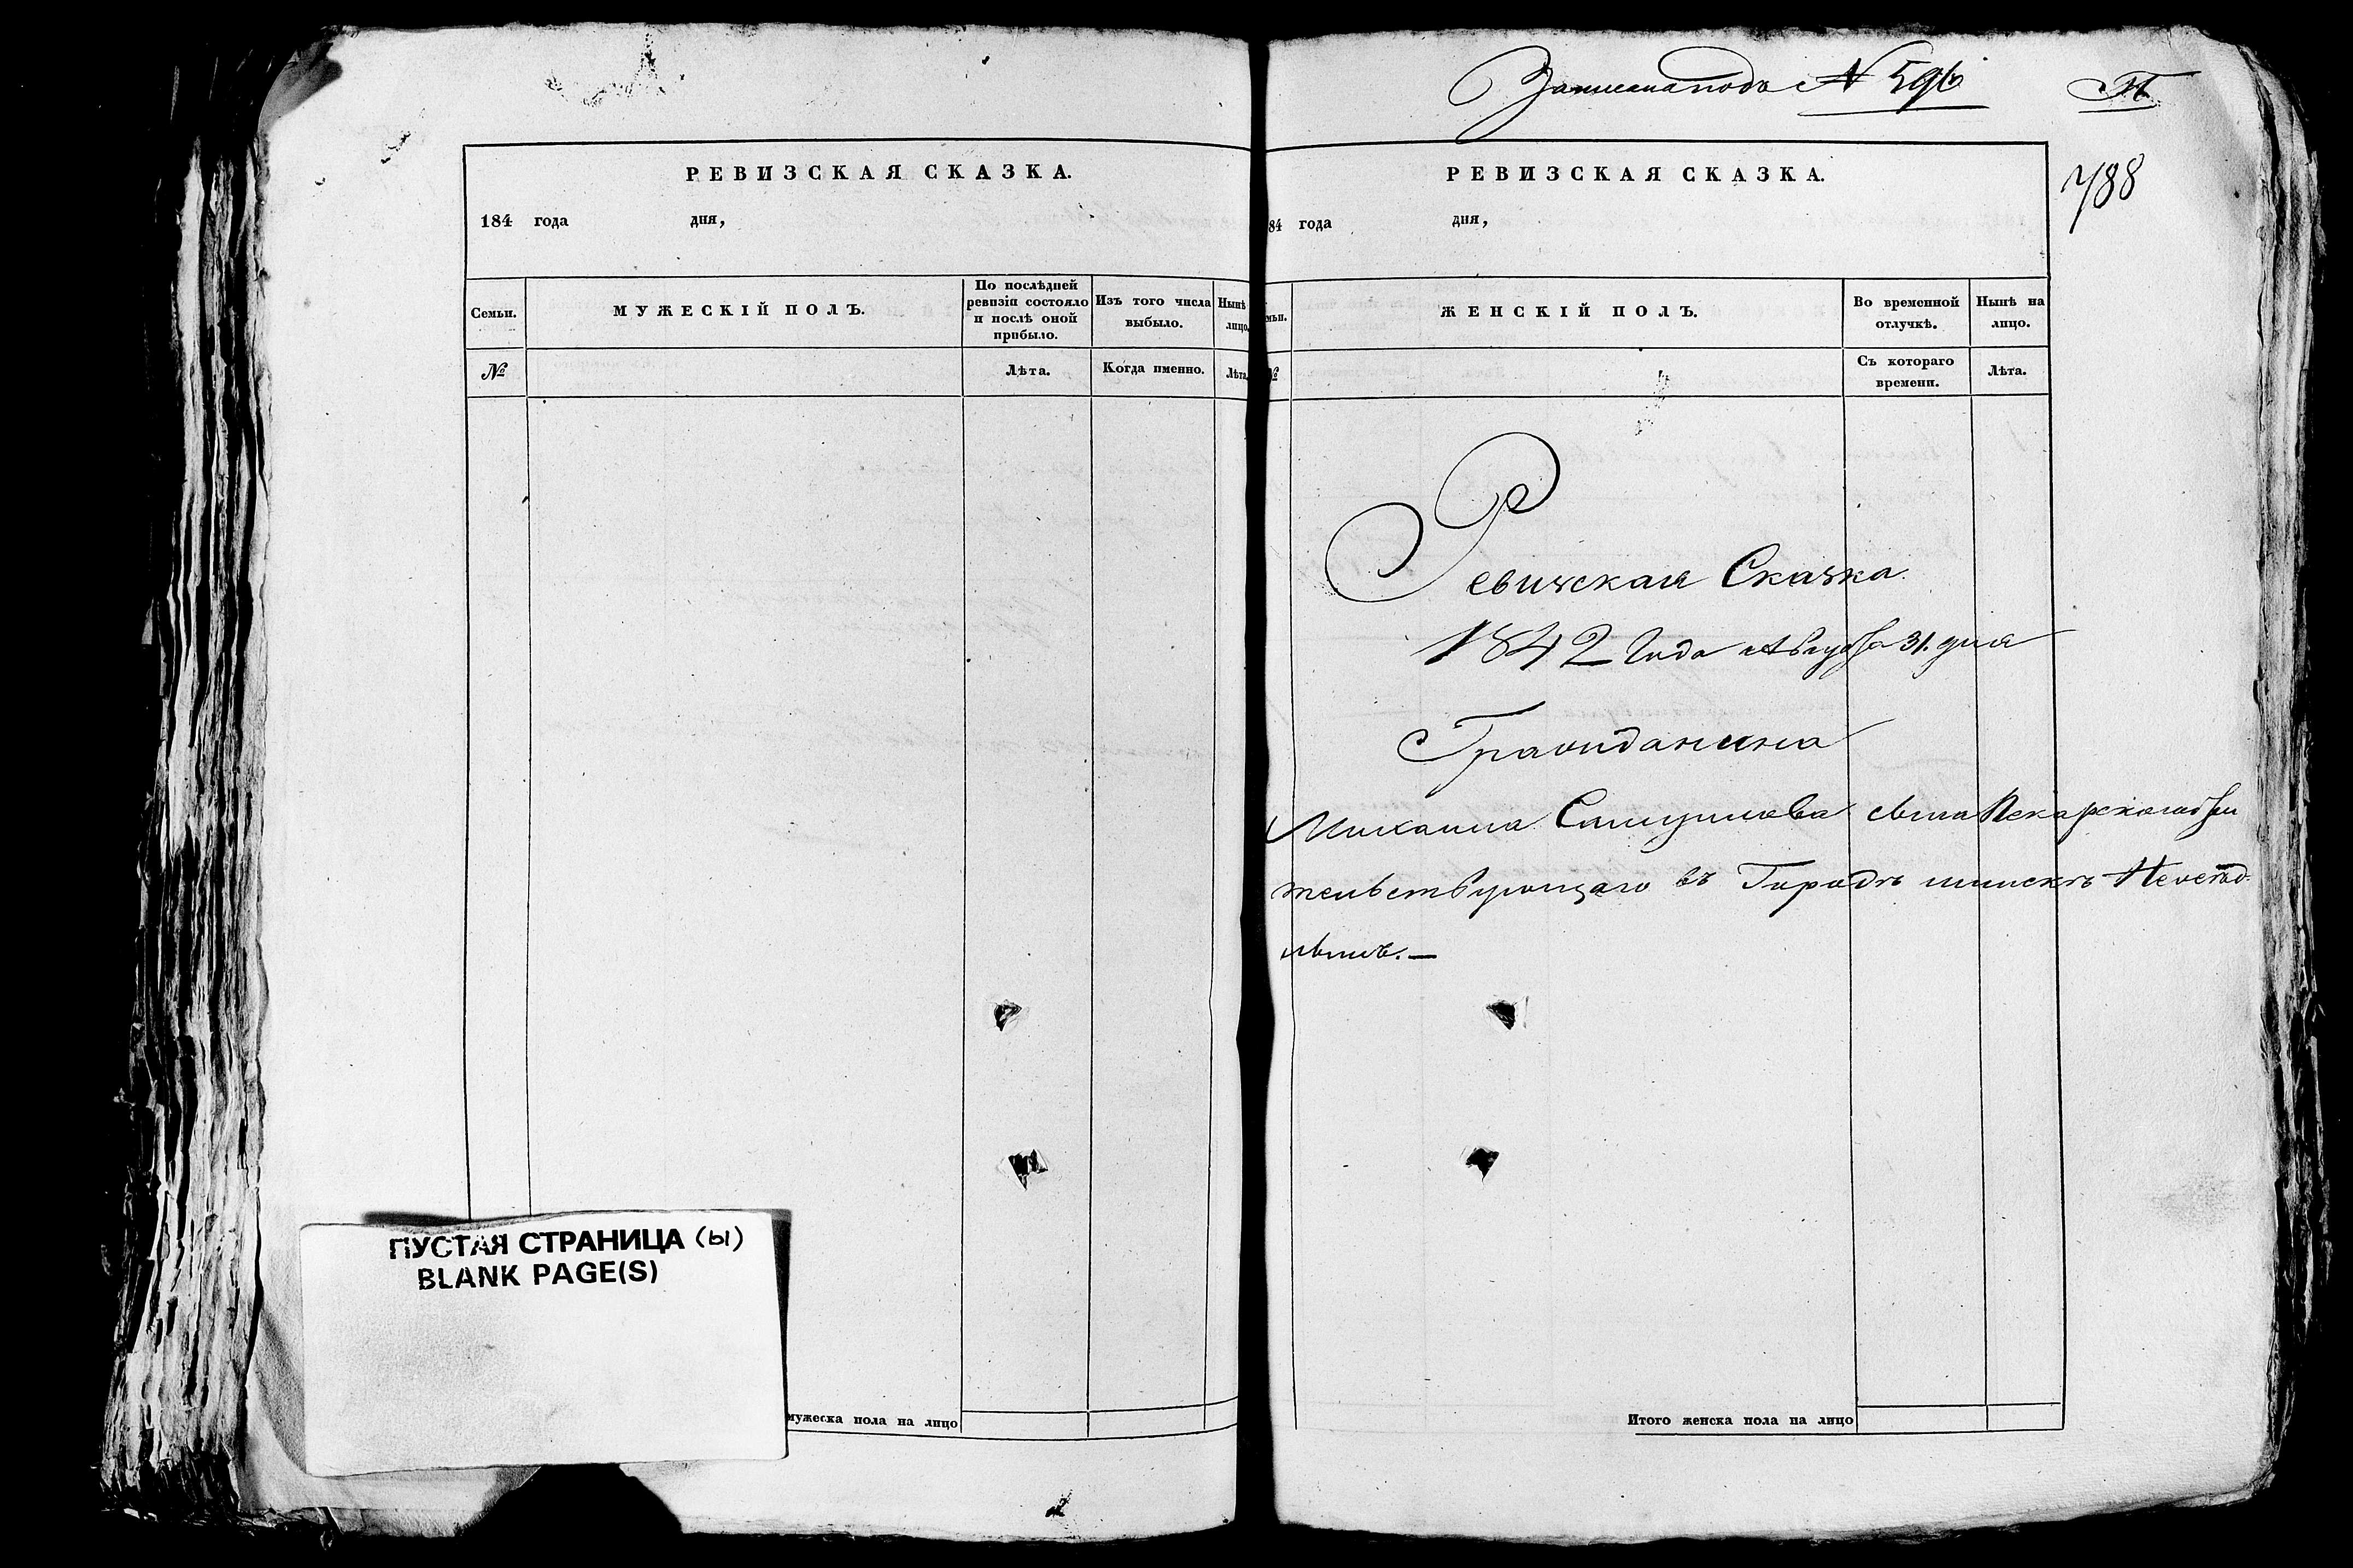 РЕВИЗСКАЯ СКАЗКА.
184 года дня,
Семьи. МУЖЕСКІЙ ПОЛЪ. По послѣдней ревизіи состояло и послѣ оной прибыло. Изъ того числа выбыло. Нынѣ лицо.
№ Лѣта. Когда именно. Лѣта.
ПУСТАЯ СТРАНИЦА (ы)
BLANK PAGE(S)
мужеска пола на лицо
Записана подъ № 596
788
РЕВИЗСКАЯ СКАЗКА.
84 года дня,
мьи. ЖЕНСКІЙ ПОЛЪ. Во временной отлучкѣ. Нынѣ на лицо.
№ Съ котораго времени. Лѣта.
Ревизская Сказка
1842 Года Августа 31. дня
Гражданина
Михаила сына Пекарского
жительствующаго въ Городѣ минскѣ
Итого женска пола на лицо